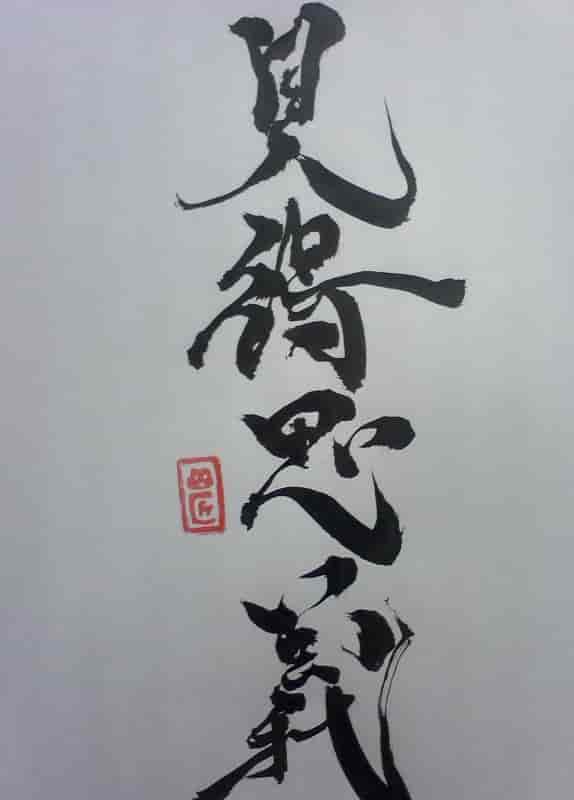 見得思義